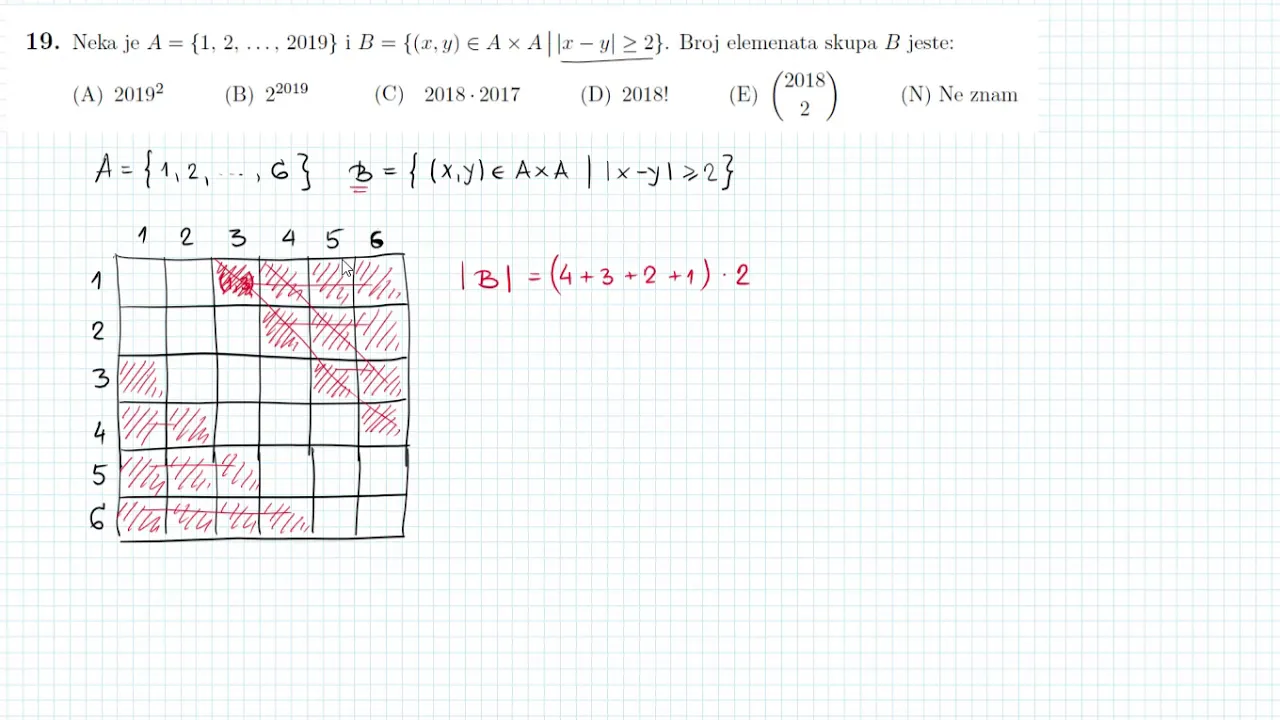 19. Neka je A = {1, 2, ..., 2019} i B = {(x, y) ∈ A × A | |x − y| ≥ 2}. Broj elemenata skupa B jeste:
(A) 2019² (B) 2²⁰¹⁹ (C) 2018 · 2017 (D) 2018! (E) (2018 2) (N) Ne znam
A = {1, 2, ..., 6} B = {(x,y) ∈ A×A | |x-y| ⩾ 2}
1 2 3 4 5 6
1
|B| = (4+3+2+1) · 2
2
3
4
5
6